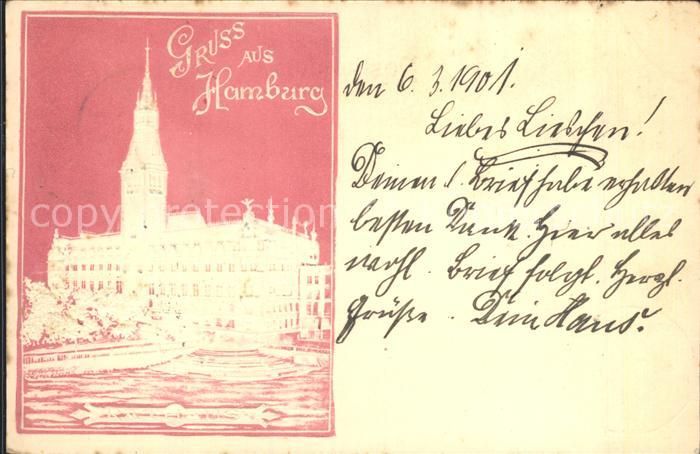 Gruss
aus
Hamburg
den 6. 3. 1901.
Liebes Lieschen!
Deinen l. Brief habe erhalten
besten Dank. Hier alles
wohl. Brief folgt. Herzl.
Grüße. Dein Hans.
RATHAUS
copyright